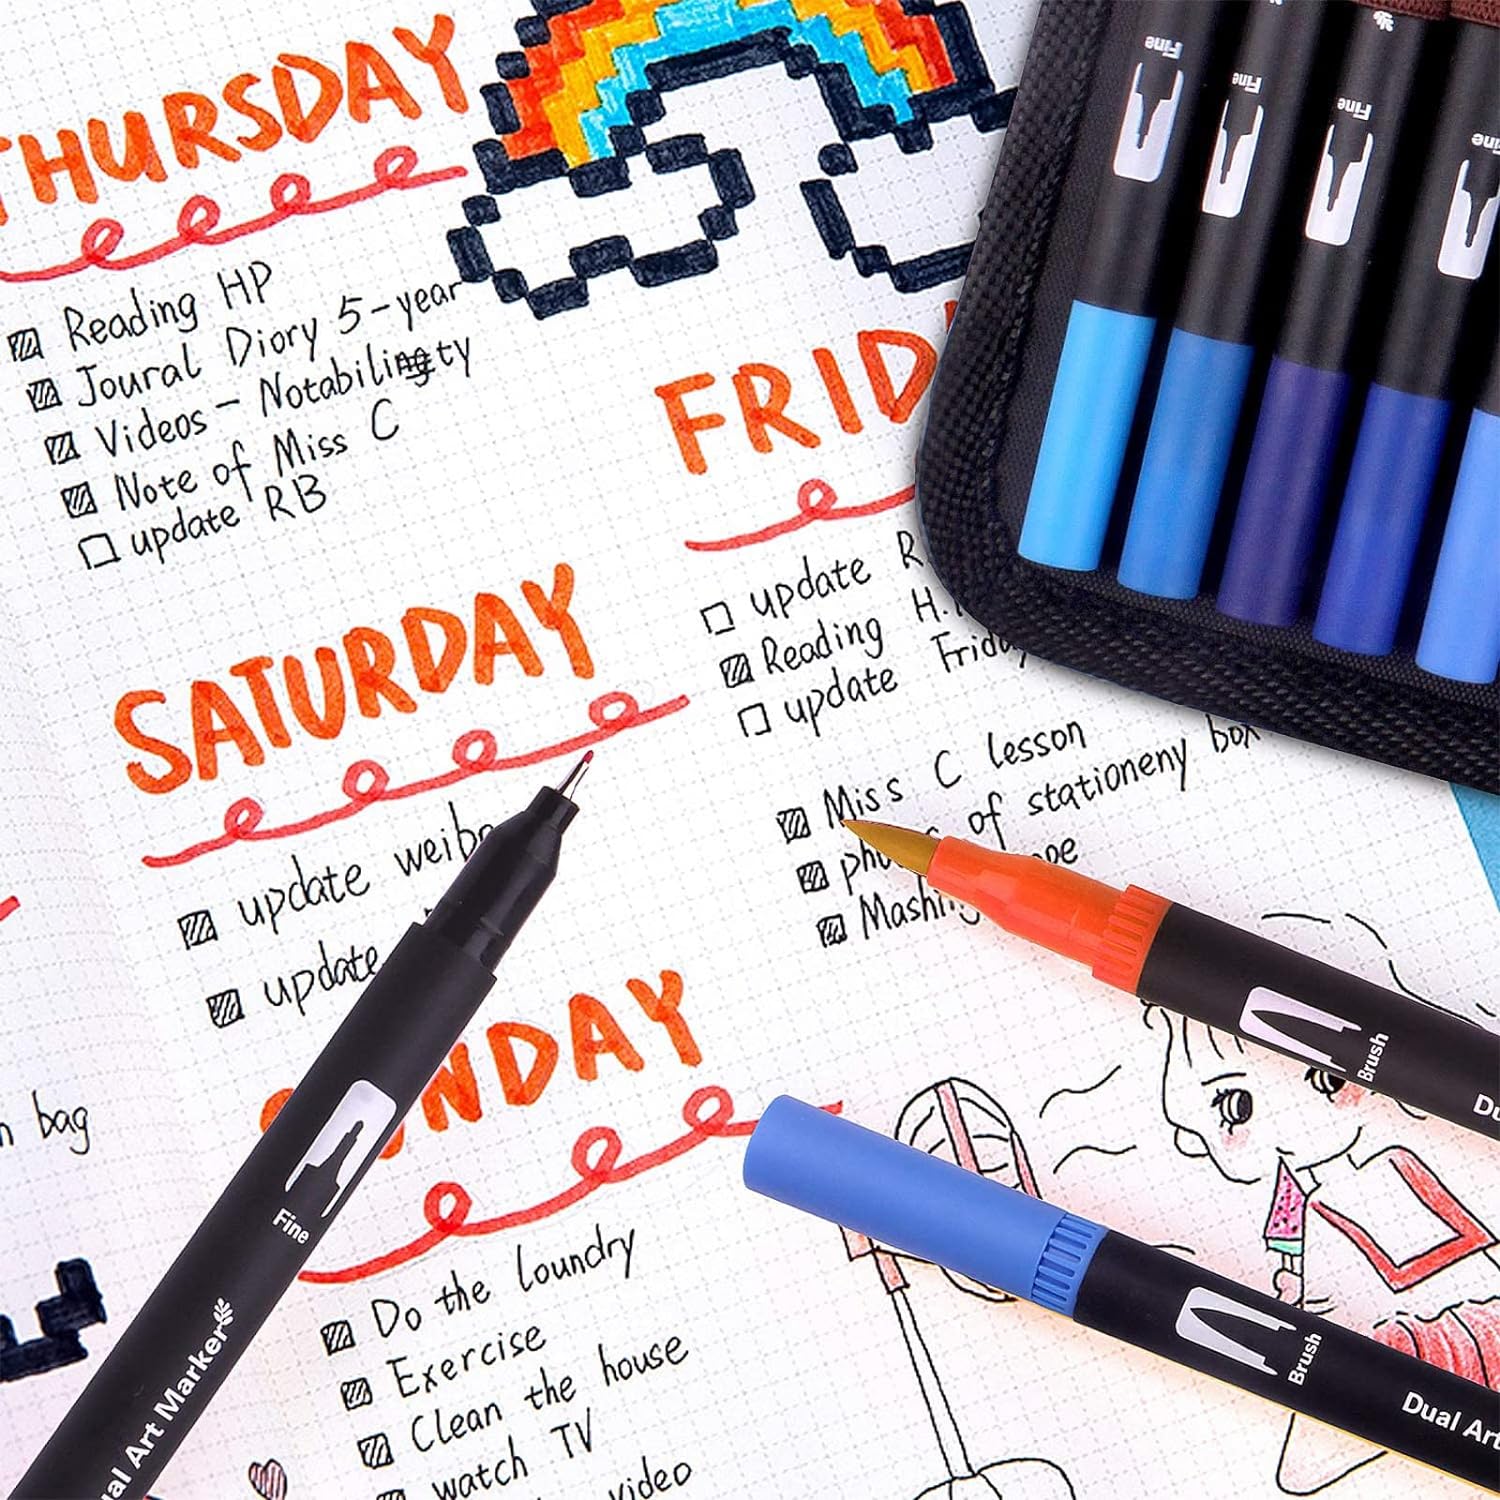 THURSDAY
Reading HP
Joural Diory 5-year
Videos - Notability
Note of Miss C
update RB
FRID
update R
Reading H.
update Friday
Miss C lesson
of stationeny box
SATURDAY
update weibo
update
SUNDAY
Do the loundry
Exercise
Clean the house
watch TV
video
bag
Fine
Fine
Fine
Fine
Fine
Art Marker
Brush
Brush
Dual Art